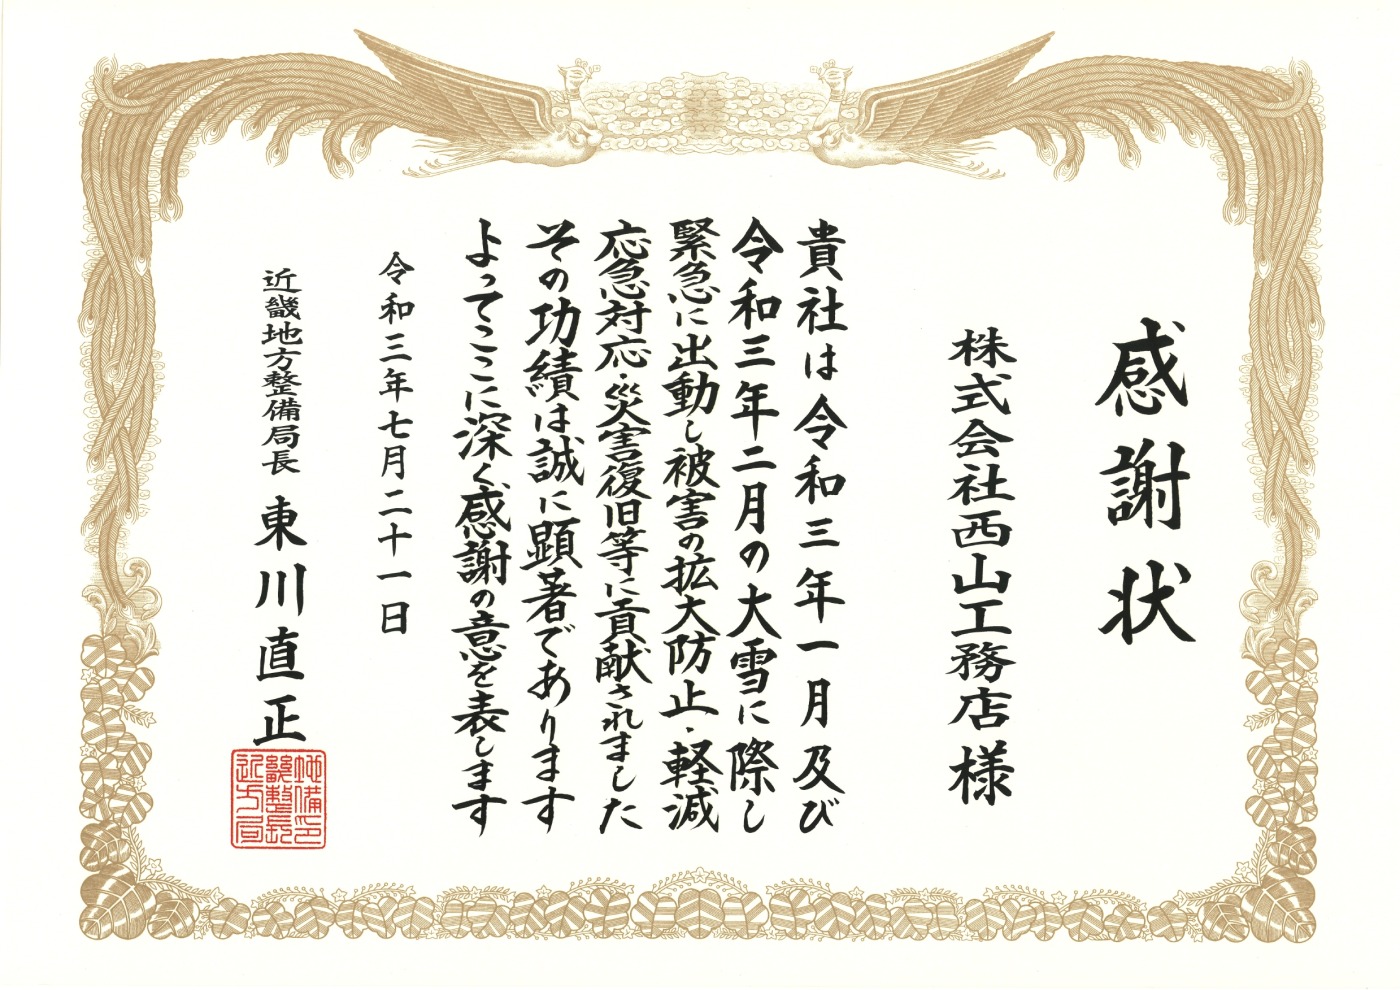 感謝状
株式会社西山工務店様
貴社は令和三年一月及び
令和三年二月の大雪に際し
緊急に出動し被害の拡大防止・軽減
応急対応・災害復旧等に貢献されました
その功績は誠に顕著であります
よってここに深く感謝の意を表します
令和三年七月二十一日
近畿地方整備局長 東川直正
近畿地方整備局長印